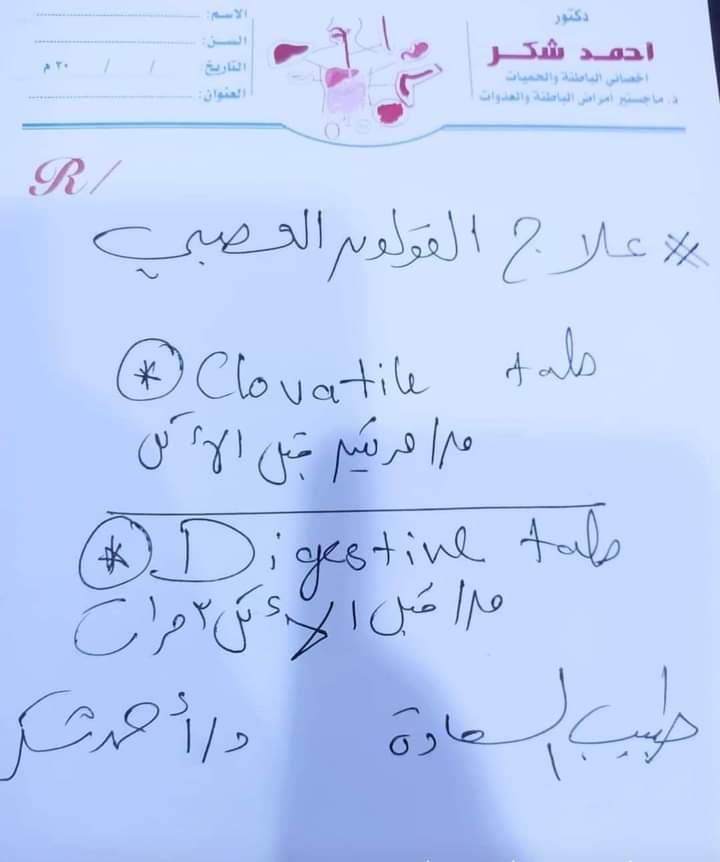 دكتور
احمد شكر
اخصائي الباطنة والحميات
د. ماجستير امراض الباطنة والعدوات
الاسم:
السن:
التاريخ / / ٢٠ م
العنوان:
R/
* علاج القولون العصبي
* Clovatile tab
مرتين قبل الأكل
* Digestive tab
قبل الأكل ٣ مرات
طبيب السعادة
د/ أحمد شكر